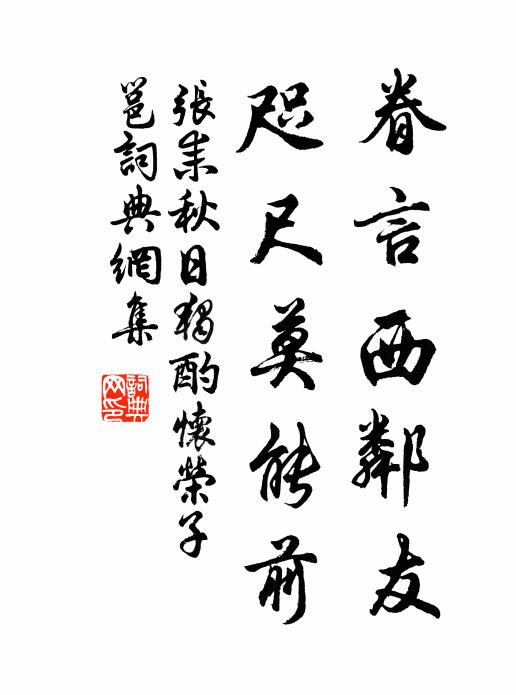 眷言西鄰友
咫尺莫能前
張耒秋日獨酌懷榮子
邕詞典網集
詞典网印